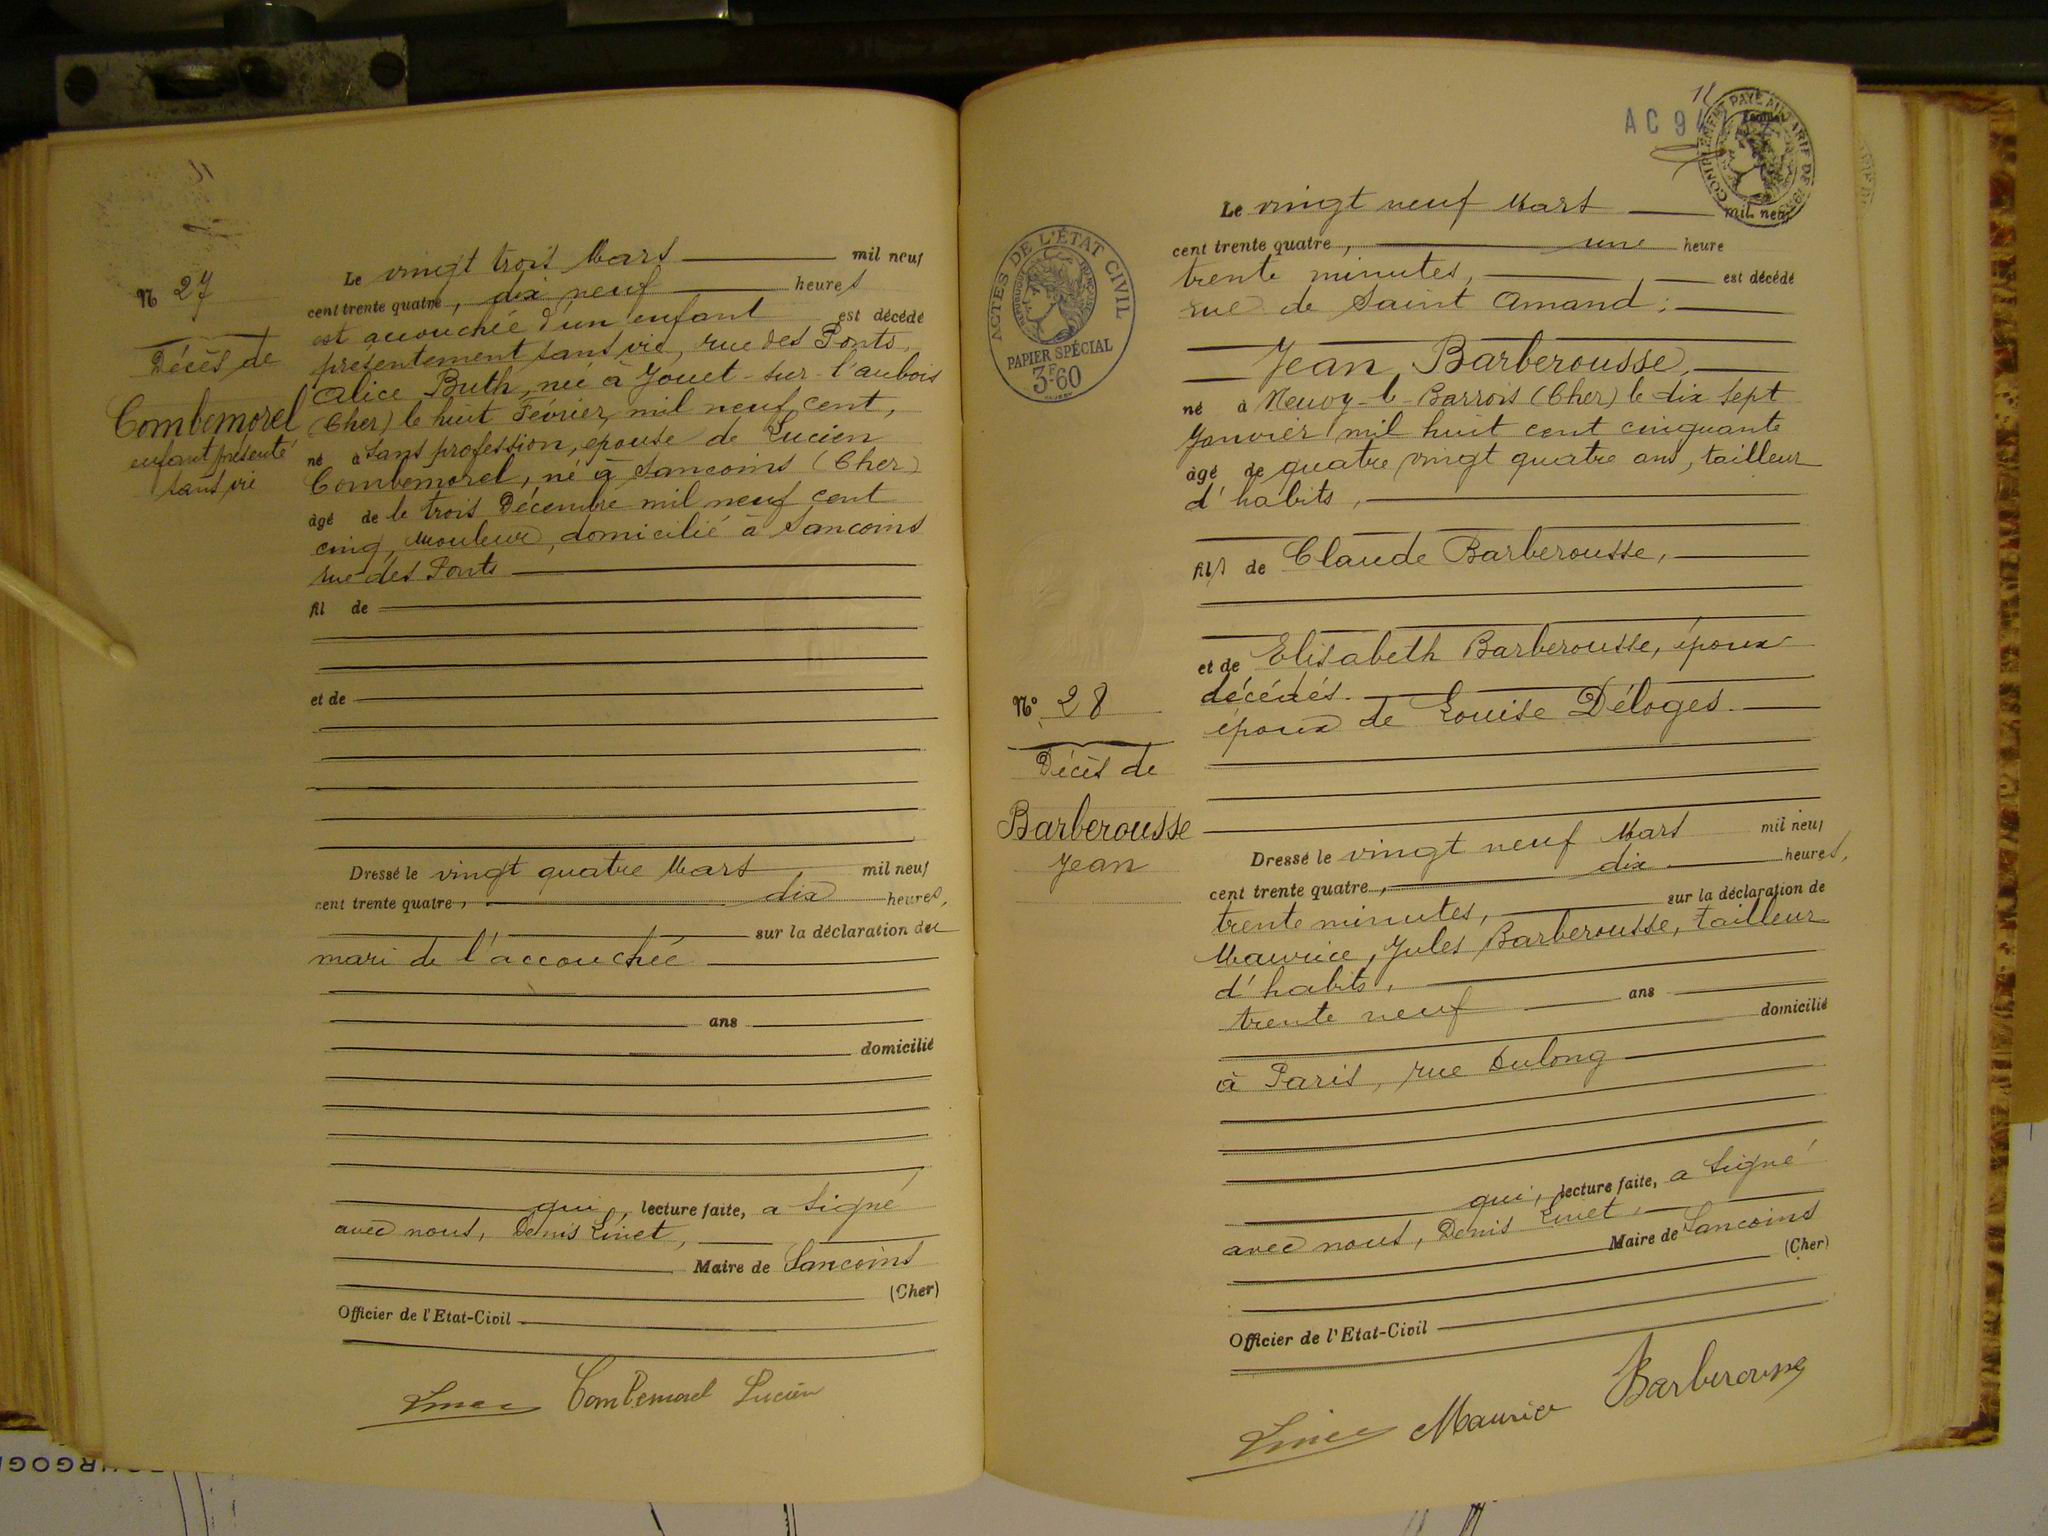 N 27
Décès de
Combemorel
enfant présenté
sans vie
Le vingt trois Mars mil neuf
cent trente quatre, dix neuf heures
est accouchée d'un enfant est décédé
présentement sans vie, rue des Ponts,
Alice Buth, née à Jouet-sur-l'aubois
(Cher) le huit Février mil neuf cent,
né à sans profession, épouse de Lucien
Combemorel, né à Sancoins (Cher)
âgé de le trois Décembre mil neuf cent
cinq, Mouleur, domicilié à Sancoins
rue des Ponts
fil de
et de
Dressé le vingt quatre Mars mil neuf
cent trente quatre, dix heures,
sur la déclaration du
mari de l'accouchée
ans
domicilié
qui, lecture faite, a signé
avec nous, Denis Linet,
Maire de Sancoins
(Cher)
Officier de l'Etat-Civil
Combemorel Lucien
AC 94
COMPLÉMENT PAYÉ AU TARIF DE
ACTES DE L'ÉTAT CIVIL
PAPIER SPÉCIAL
3F60
N° 28
Décès de
Barberousse
Jean
Le vingt neuf Mars mil neuf
cent trente quatre, une heure
trente minutes, est décédé
rue de Saint Amand:
Jean Barberousse,
né à Neuvy-le-Barrois (Cher) le dix sept
Janvier mil huit cent cinquante
âgé de quatre vingt quatre ans, tailleur
d'habits,
fils de Claude Barberousse,
et de Elisabeth Barberousse, époux
décédés.
époux de Louise Déloges
Dressé le vingt neuf Mars mil neuf
cent trente quatre, dix heures,
trente minutes, sur la déclaration de
Maurice, Jules Barberousse, tailleur
d'habits,
trente neuf ans
domicilié
à Paris, rue Dulong
qui, lecture faite, a signé
avec nous, Denis Linet,
Maire de Sancoins
(Cher)
Officier de l'Etat-Civil
Maurice Barberousse